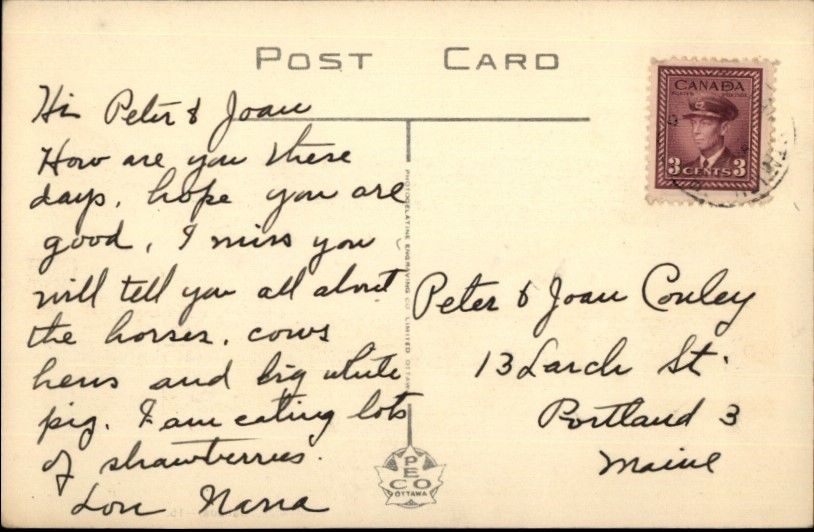 POST CARD
Hi Peter & Joan
How are you these
days. hope you are
good, I miss you
will tell you all about
the horses. cows
hens and big white
pig. I am eating lots
of strawberries.
Lov Nana
CANADA
POSTES POSTAGE
3 CENTS 3
PHOTOGELATINE ENGRAVING CO. LIMITED OTTAWA
Peter & Joan Conley
13 Larch St.
Portland 3
Maine
PECO
OTTAWA